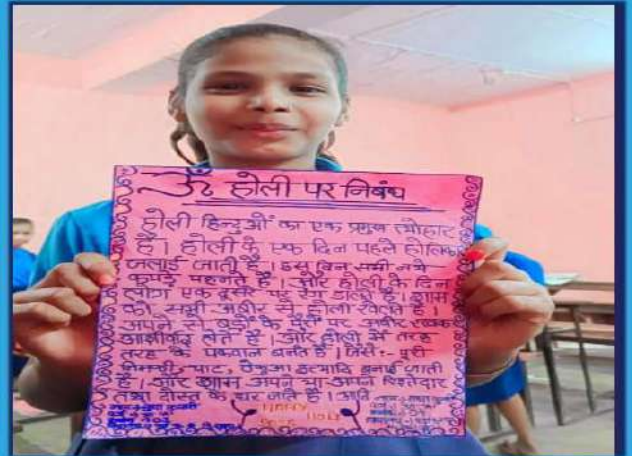 ॐ होली पर निबंध
होली हिन्दुओं का एक प्रमुख त्योहार
है। होली के एक दिन पहले होलिका
जलाई जाती है। इस दिन सभी नये
कपड़े पहनते है। और होली के दिन
लोग एक दूसरे पर रंग डालते है। शाम
को सभी अबीर से होली खेलते है।
अपने से बड़ो के पैरो पर अबीर रखकर
आशीर्वाद लेते है। और होली में तरह
तरह के पकवान बनते है। जैसे:- पुरी
चाट, इत्यादि बनाई जाती
है। और शाम अपने रिश्तेदार
तथा दोस्त के घर जाते है।
HAPPY
HOLI